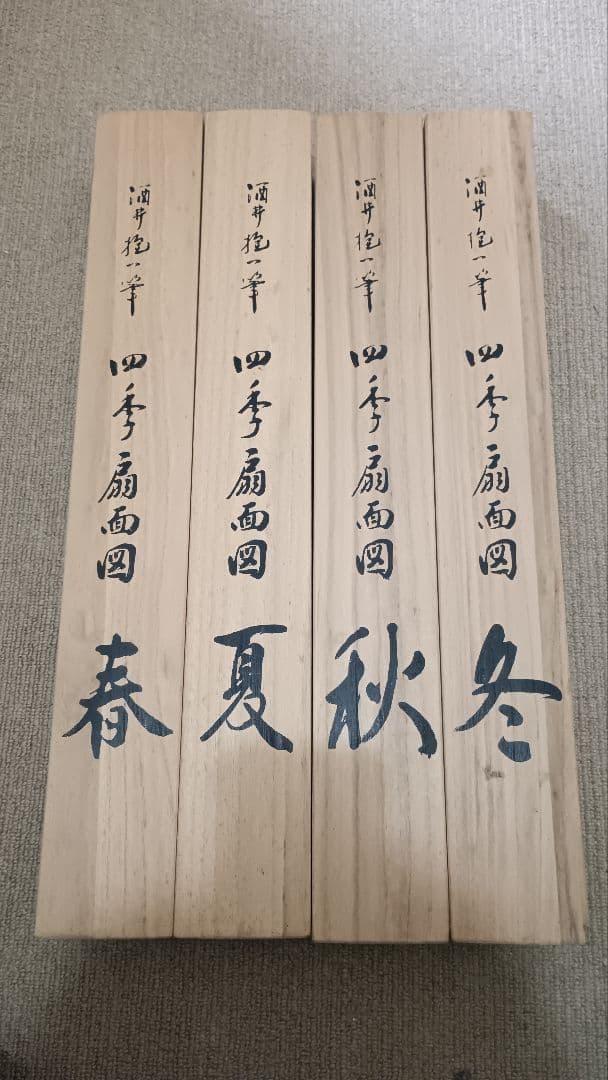 酒井抱一筆
四季扇面図
春
酒井抱一筆
四季扇面図
夏
酒井抱一筆
四季扇面図
秋
酒井抱一筆
四季扇面図
冬